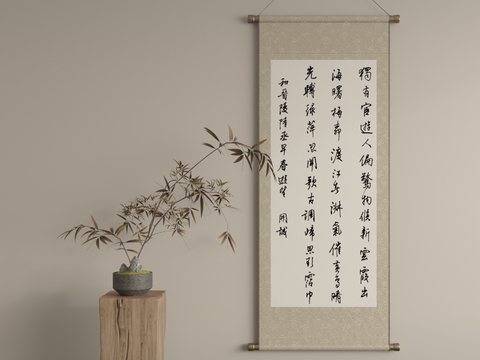 獨有宦遊人偏驚物候新雲霞出
海曙梅柳渡江春淑氣催黃鳥晴
光轉綠萍忽聞歌古調歸思欲霑巾
和晉陵陸丞早春遊望 開誠